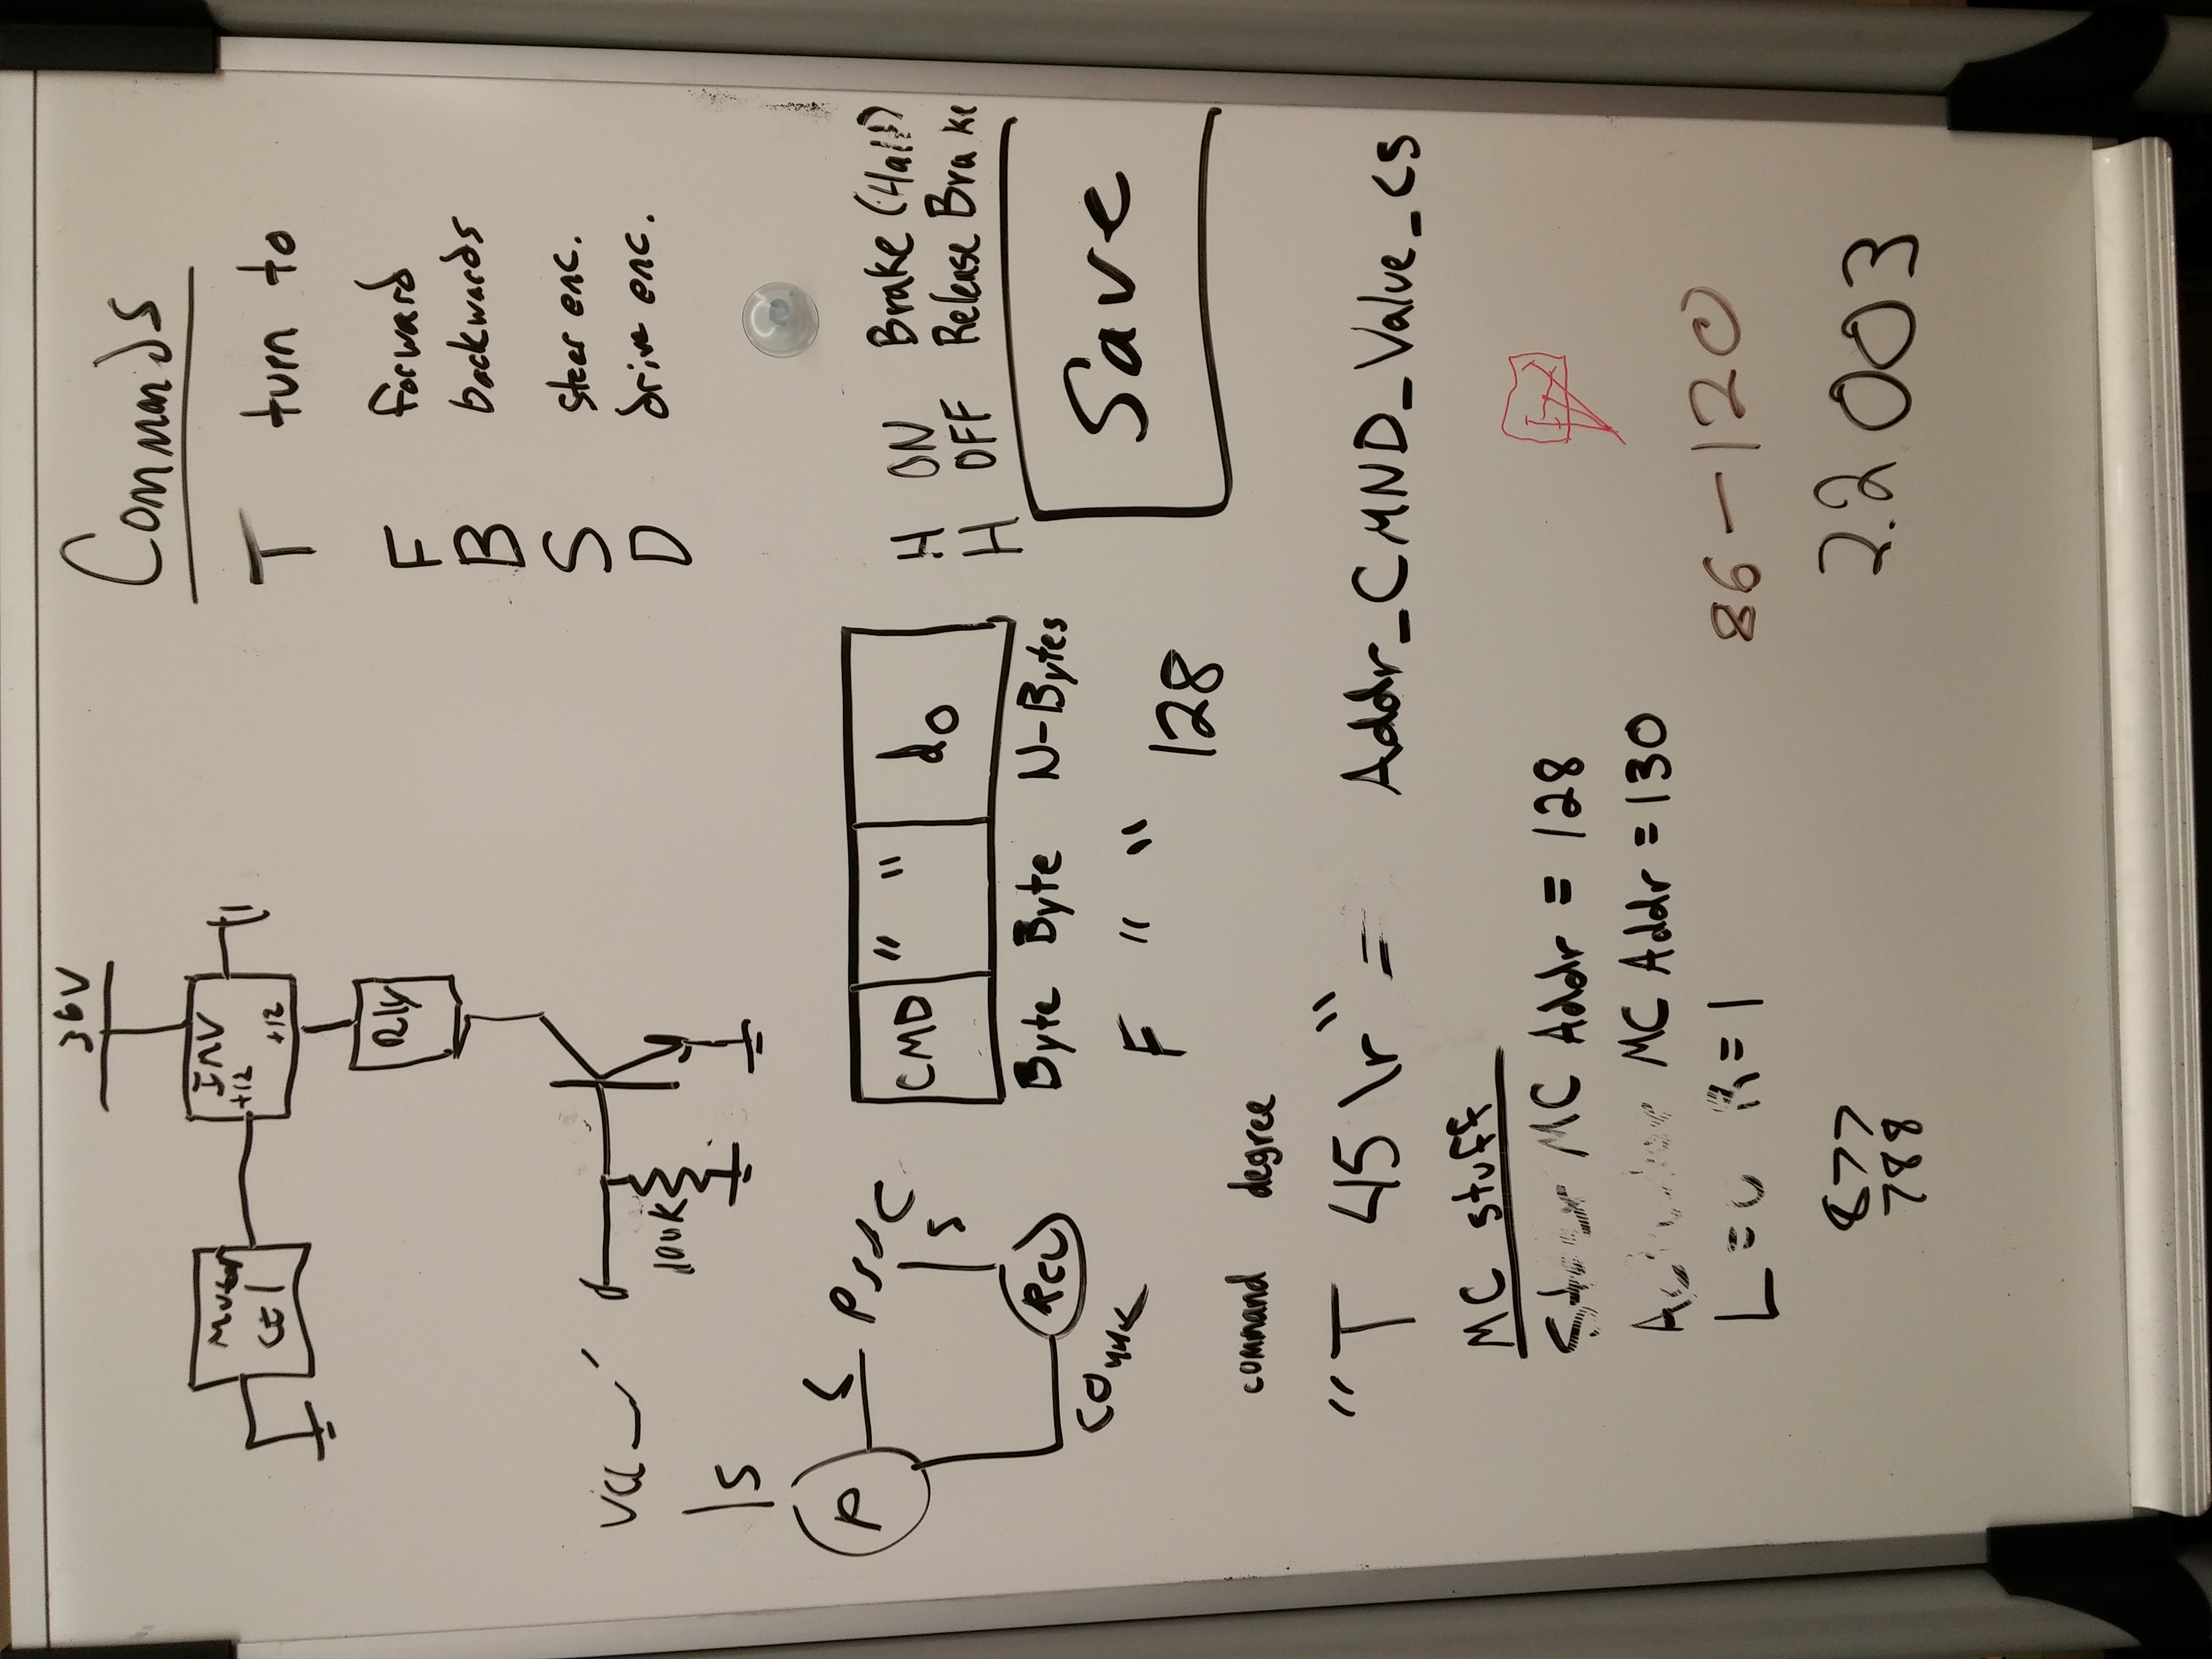 36V
Motor
Ctl
INV
+12
+12
Rly
VCC
100K
S
P
S
PSoC
S
Commands
T turn to
F forward
B backwards
S steer enc.
D drive enc.
CMD " " d0
Byte Byte N-Bytes
F " " 128
H ON Brake (Halt)
H OFF Release Brake
Save
command degree
"T 45 \r" = Addr_CMND_Value_CS
MC stuff
Steer MC Addr = 128
Actuator MC Addr = 130
L = 0 R = 1
877
788
86-120
2.2003